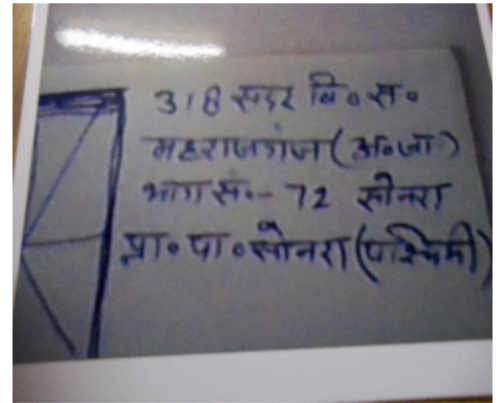 318 सदर वि० स०
महराजगंज (अ०जा)
भाग सं०- 72 सोनरा
प्रा० पा० सोनरा (पश्चिमी)